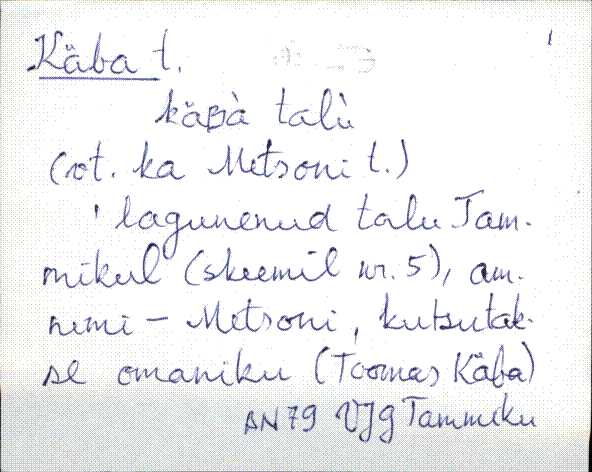 Käba t.
1
käBà talù
(vt. ka Metsoni t.)
' lagunenud talu Tam-
mikul (skeemil nr. 5), am.
nimi - Metsoni, kutsutak-
se omaniku (Toomas Käba)
AN79 VJg Tammiku